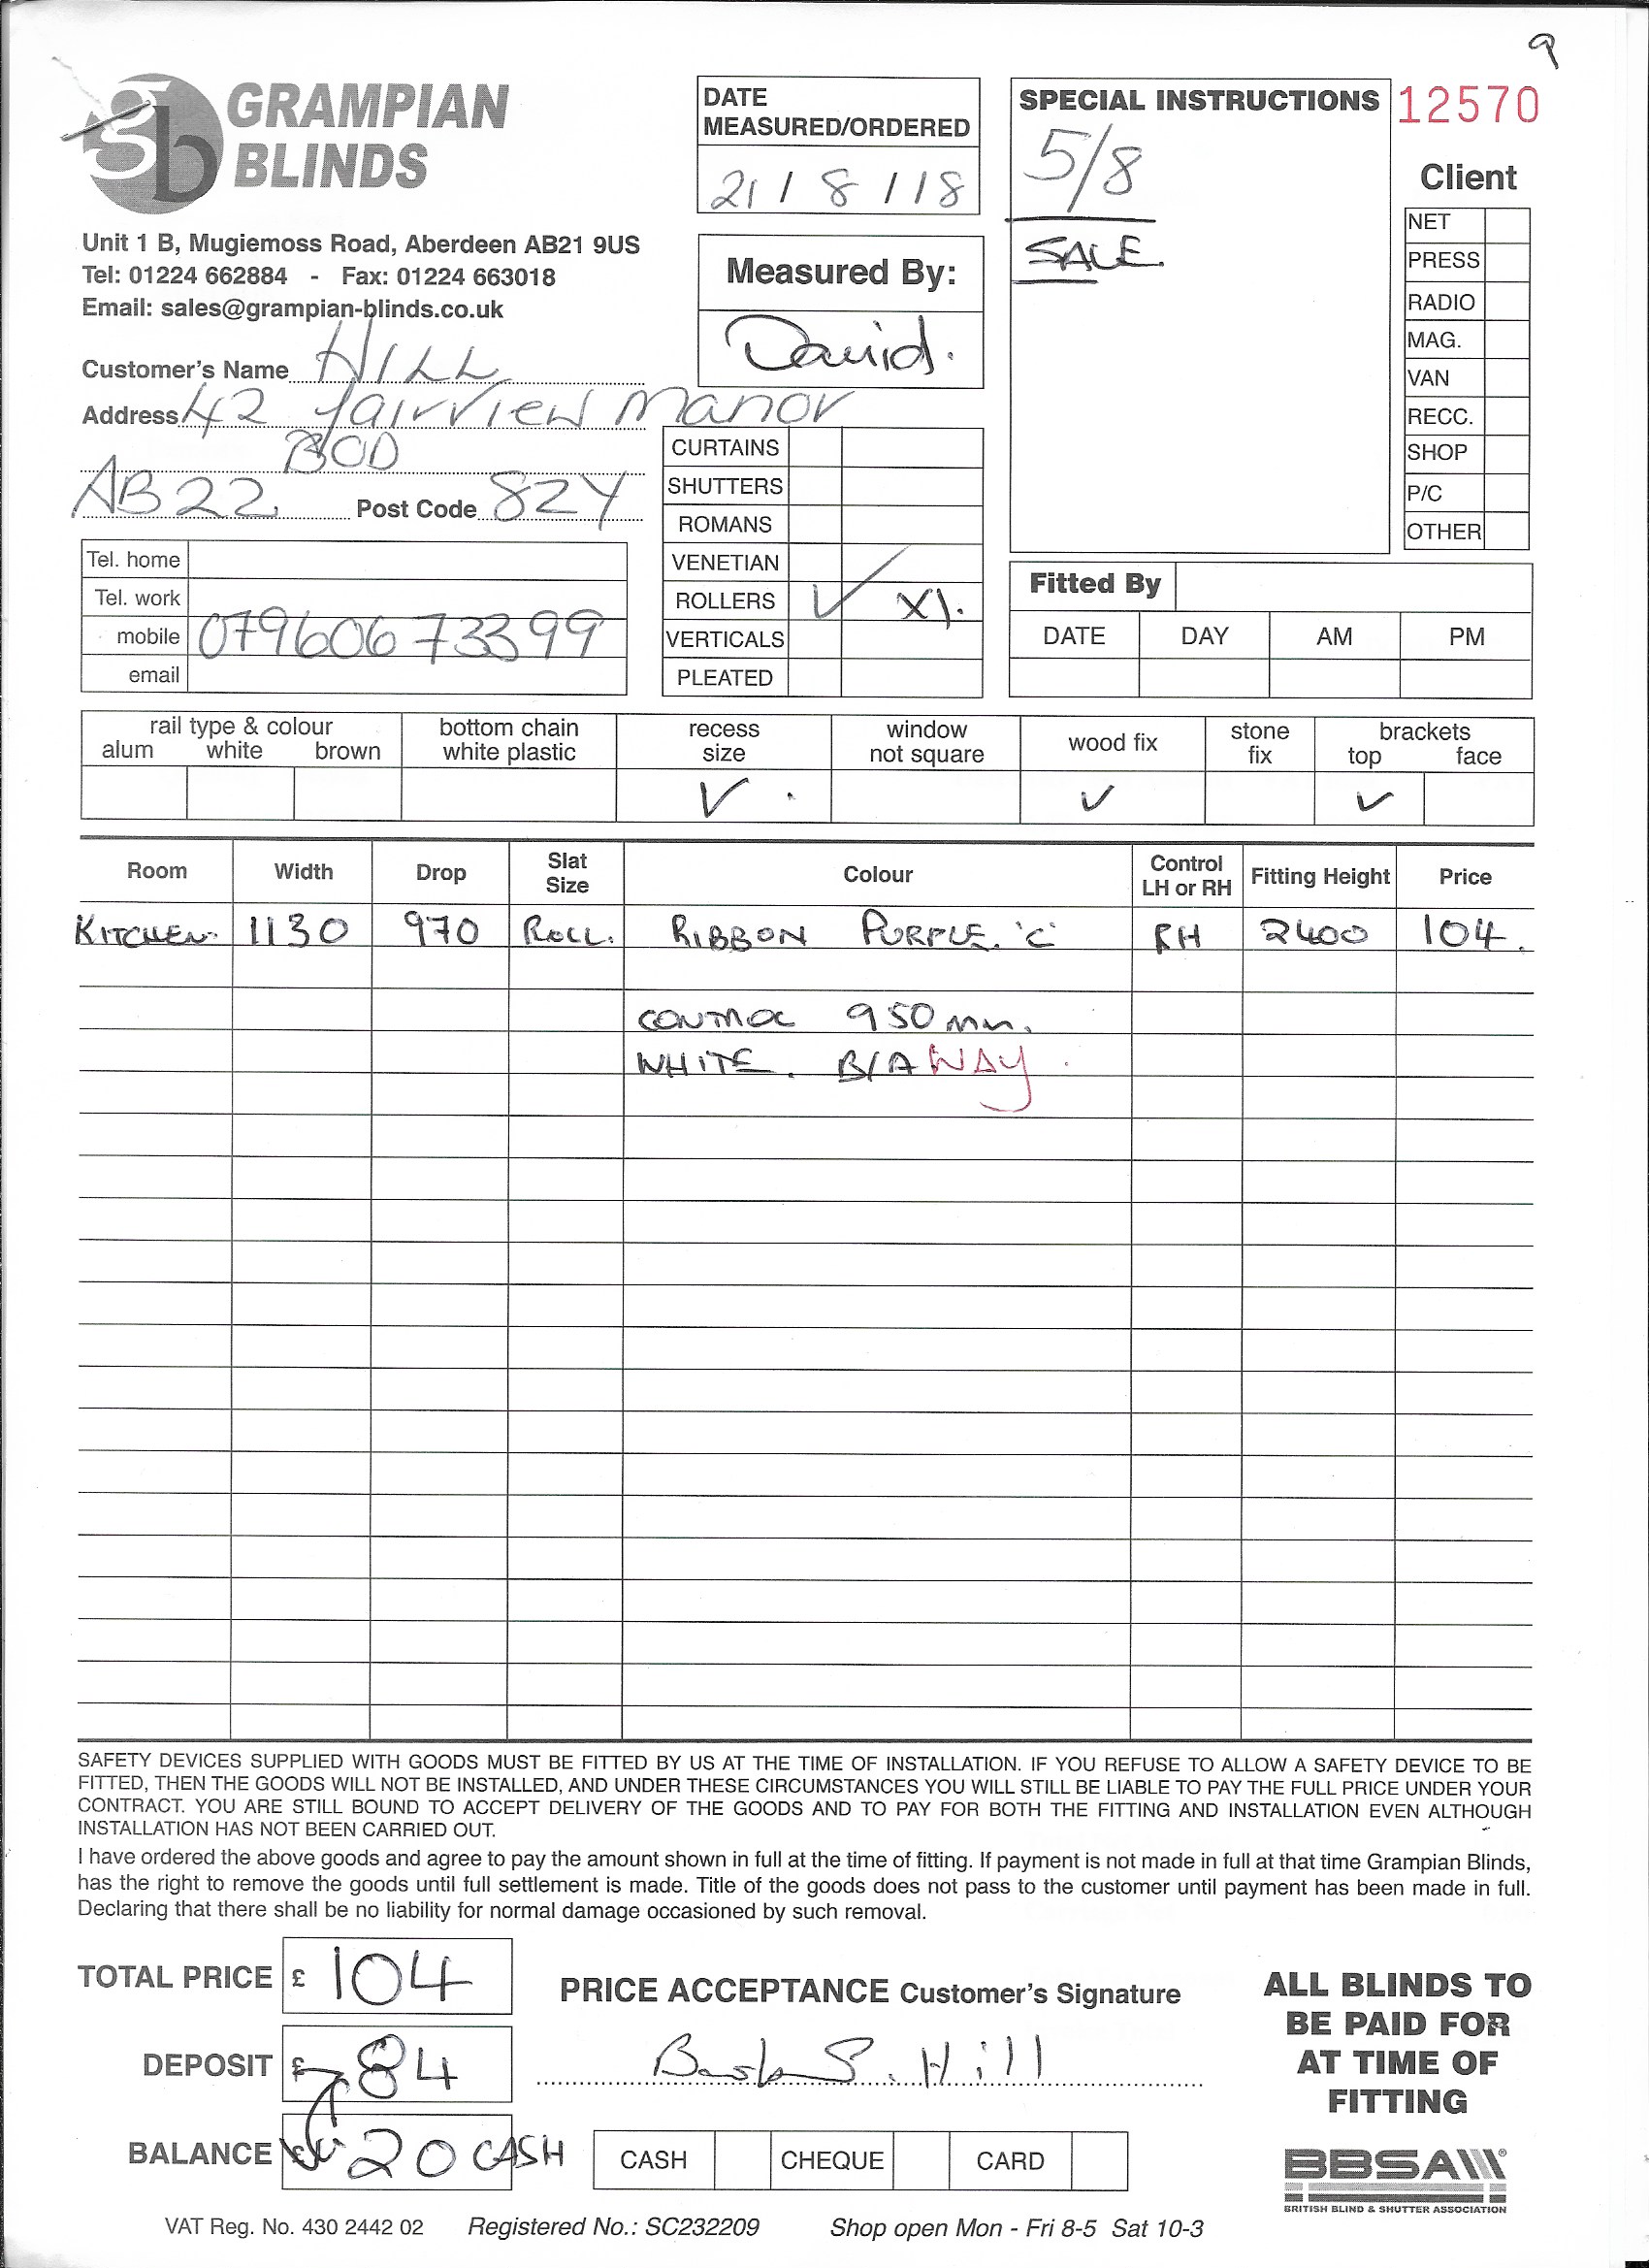 9
GRAMPIAN
BLINDS
gb
Unit 1 B, Mugiemoss Road, Aberdeen AB21 9US
Tel: 01224 662884 - Fax: 01224 663018
Email: sales@grampian-blinds.co.uk
DATE
MEASURED/ORDERED
21/8/18
Measured By:
David.
SPECIAL INSTRUCTIONS
5/8
SALE.
12570
Client
NET
PRESS
RADIO
MAG.
VAN
RECC.
SHOP
P/C
OTHER
Customer's Name HILL
Address 42 Fairview Manor
BOD
AB22 Post Code 8ZY
Tel. home
Tel. work
mobile 07960673399
email
CURTAINS
SHUTTERS
ROMANS
VENETIAN
ROLLERS ✓ X1.
VERTICALS
PLEATED
Fitted By
DATE DAY AM PM
rail type & colour
alum white brown
bottom chain
white plastic
recess
size
window
not square
wood fix
stone
fix
brackets
top face
✓ ✓ ✓
Room Width Drop Slat Size Colour Control LH or RH Fitting Height Price
KITCHEN. 1130 970 ROLL. RIBBON PURPLE. 'C' RH 2400 104.
CONTROL 950mm.
WHITE. B/AWAY.
SAFETY DEVICES SUPPLIED WITH GOODS MUST BE FITTED BY US AT THE TIME OF INSTALLATION. IF YOU REFUSE TO ALLOW A SAFETY DEVICE TO BE
FITTED, THEN THE GOODS WILL NOT BE INSTALLED, AND UNDER THESE CIRCUMSTANCES YOU WILL STILL BE LIABLE TO PAY THE FULL PRICE UNDER YOUR
CONTRACT. YOU ARE STILL BOUND TO ACCEPT DELIVERY OF THE GOODS AND TO PAY FOR BOTH THE FITTING AND INSTALLATION EVEN ALTHOUGH
INSTALLATION HAS NOT BEEN CARRIED OUT.
I have ordered the above goods and agree to pay the amount shown in full at the time of fitting. If payment is not made in full at that time Grampian Blinds,
has the right to remove the goods until full settlement is made. Title of the goods does not pass to the customer until payment has been made in full.
Declaring that there shall be no liability for normal damage occasioned by such removal.
TOTAL PRICE £ 104
DEPOSIT £ 84
BALANCE £ 20 CASH
PRICE ACCEPTANCE Customer's Signature
S. Hill
CASH CHEQUE CARD
ALL BLINDS TO
BE PAID FOR
AT TIME OF
FITTING
BBSA
BRITISH BLIND & SHUTTER ASSOCIATION
VAT Reg. No. 430 2442 02 Registered No.: SC232209 Shop open Mon - Fri 8-5 Sat 10-3